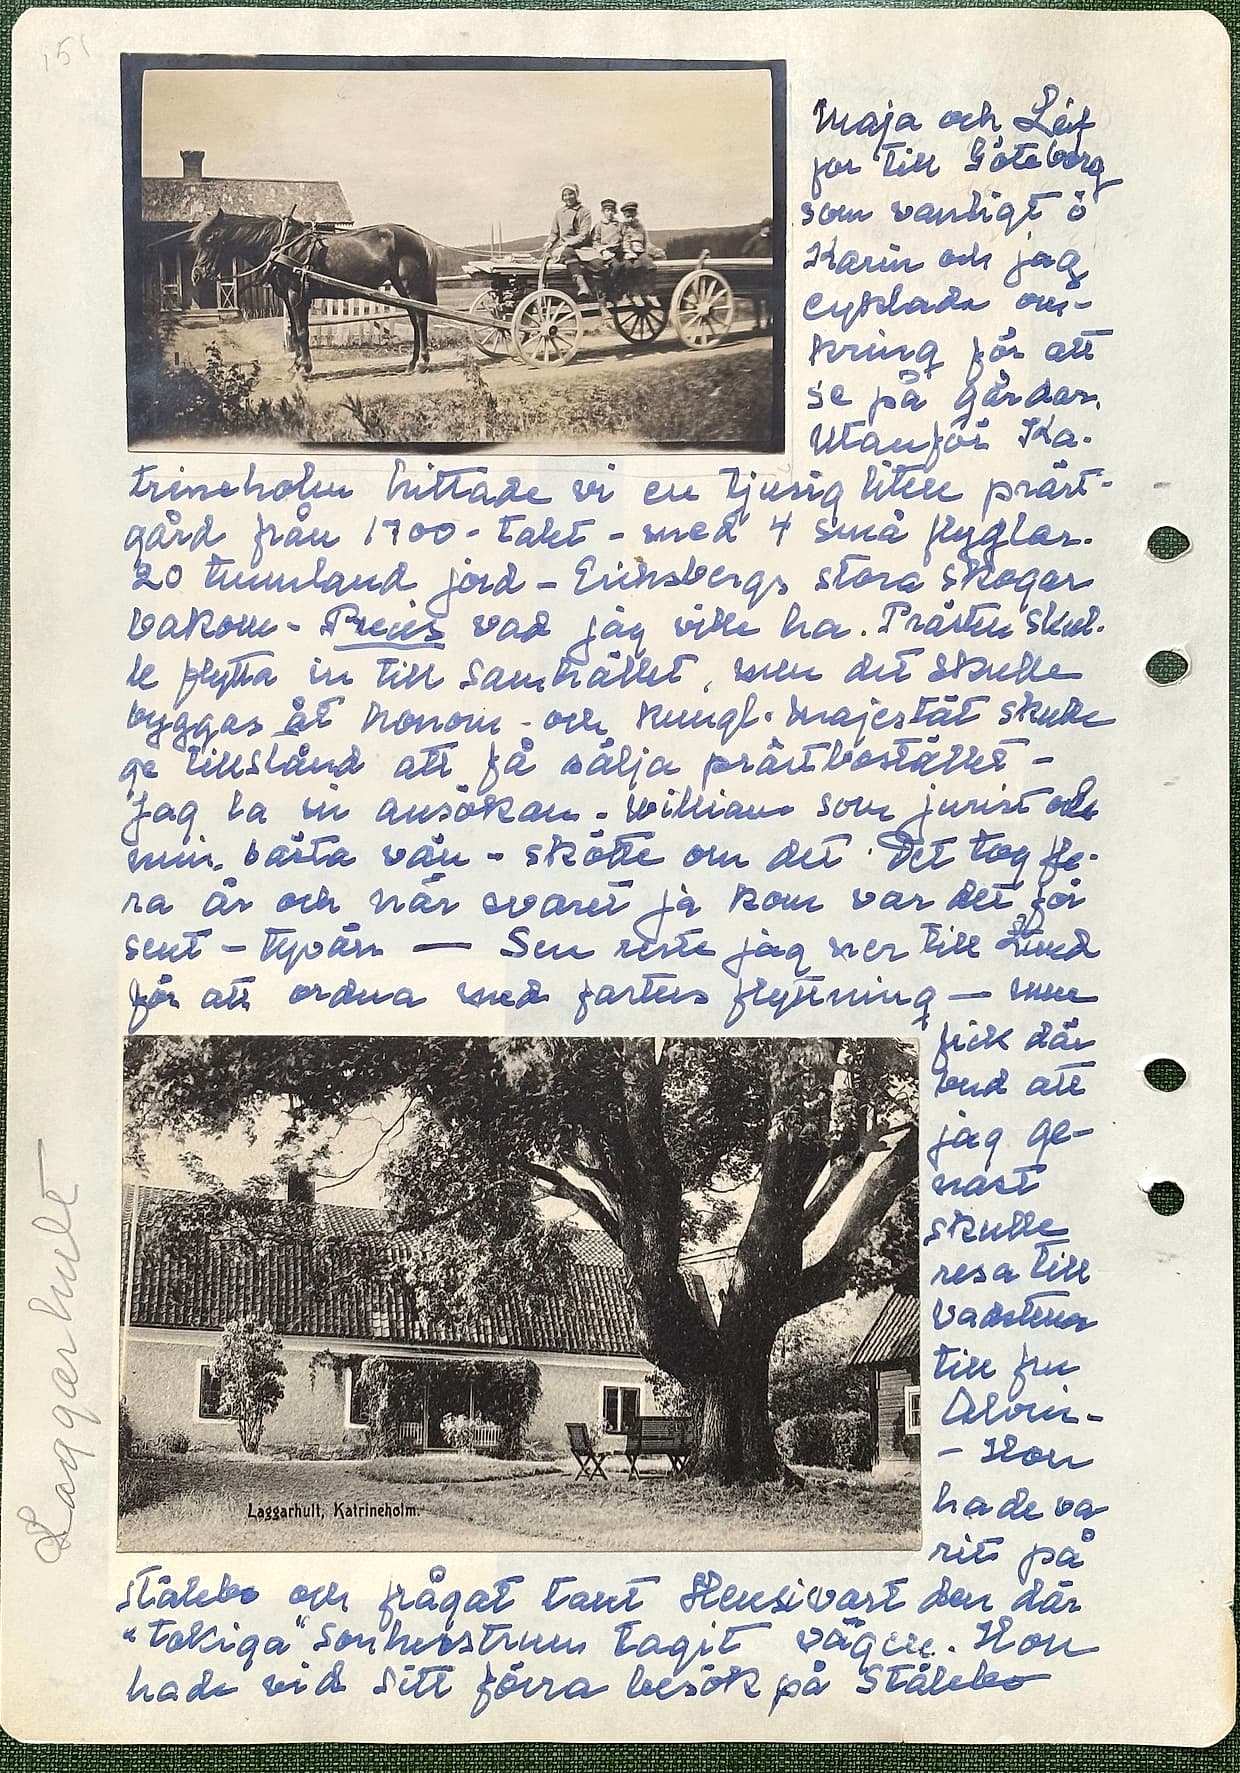 151
Maja och Leif
for till Göteborg
som vanligt o
Karin och jag
cyklade om-
kring för att
se på gårdar.
Utanför Ka-
trineholm hittade vi en tjusig liten präst-
gård från 1700-talet - med 4 små flyglar.
20 tunnland jord - Eriksbergs stora skogar
bakom - Precis vad jag ville ha. Prästen skul-
le flytta in till samhället, men det skulle
byggas åt honom - och Kungl. Majestät skulle
ge tillstånd att få sälja prästbostället -
Jag la in ansökan - William som jurist och
min bästa vän - skötte om det. Det tog fle-
ra år och när svaret ja kom var det för
sent - tyvärr — Sen reste jag ner till Lund
för att ordna med farters flyttning — men
fick där
bud att
jag ge-
nast
skulle
resa till
Vadstena
till fru
Alvin-
- Hon
hade va
rit på
Stålebo och frågat vart den där
"tokiga" tagit vägen. Hon
hade vid sitt förra besök på Stålebo
Laggarhult, Katrineholm.
Laggarhult